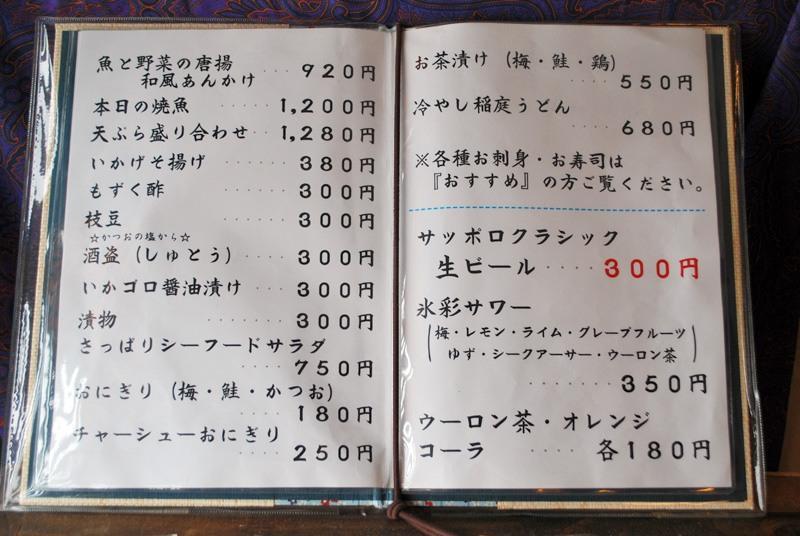 魚と野菜の唐揚
和風あんかけ ···· 920円
本日の焼魚 ···· 1,200円
天ぷら盛り合わせ ·· 1,280円
いかげそ揚げ ······ 380円
もずく酢 ······ 300円
枝豆 ······ 300円
☆かつおの塩から☆
酒盗（しゅとう） ····· 300円
いかゴロ醤油漬け ···· 300円
漬物 ········ 300円
さっぱりシーフードサラダ
····· 750円
おにぎり（梅・鮭・かつお）
····· 180円
チャーシューおにぎり
····· 250円
お茶漬け（梅・鮭・鶏）
···· 550円
冷やし稲庭うどん
···· 680円
※各種お刺身・お寿司は
『おすすめ』の方ご覧ください。
サッポロクラシック
生ビール ···· 300円
氷彩サワー
（梅・レモン・ライム・グレープフルーツ
ゆず・シークアーサー・ウーロン茶）
········ 350円
ウーロン茶・オレンジ
コーラ ···· 各180円